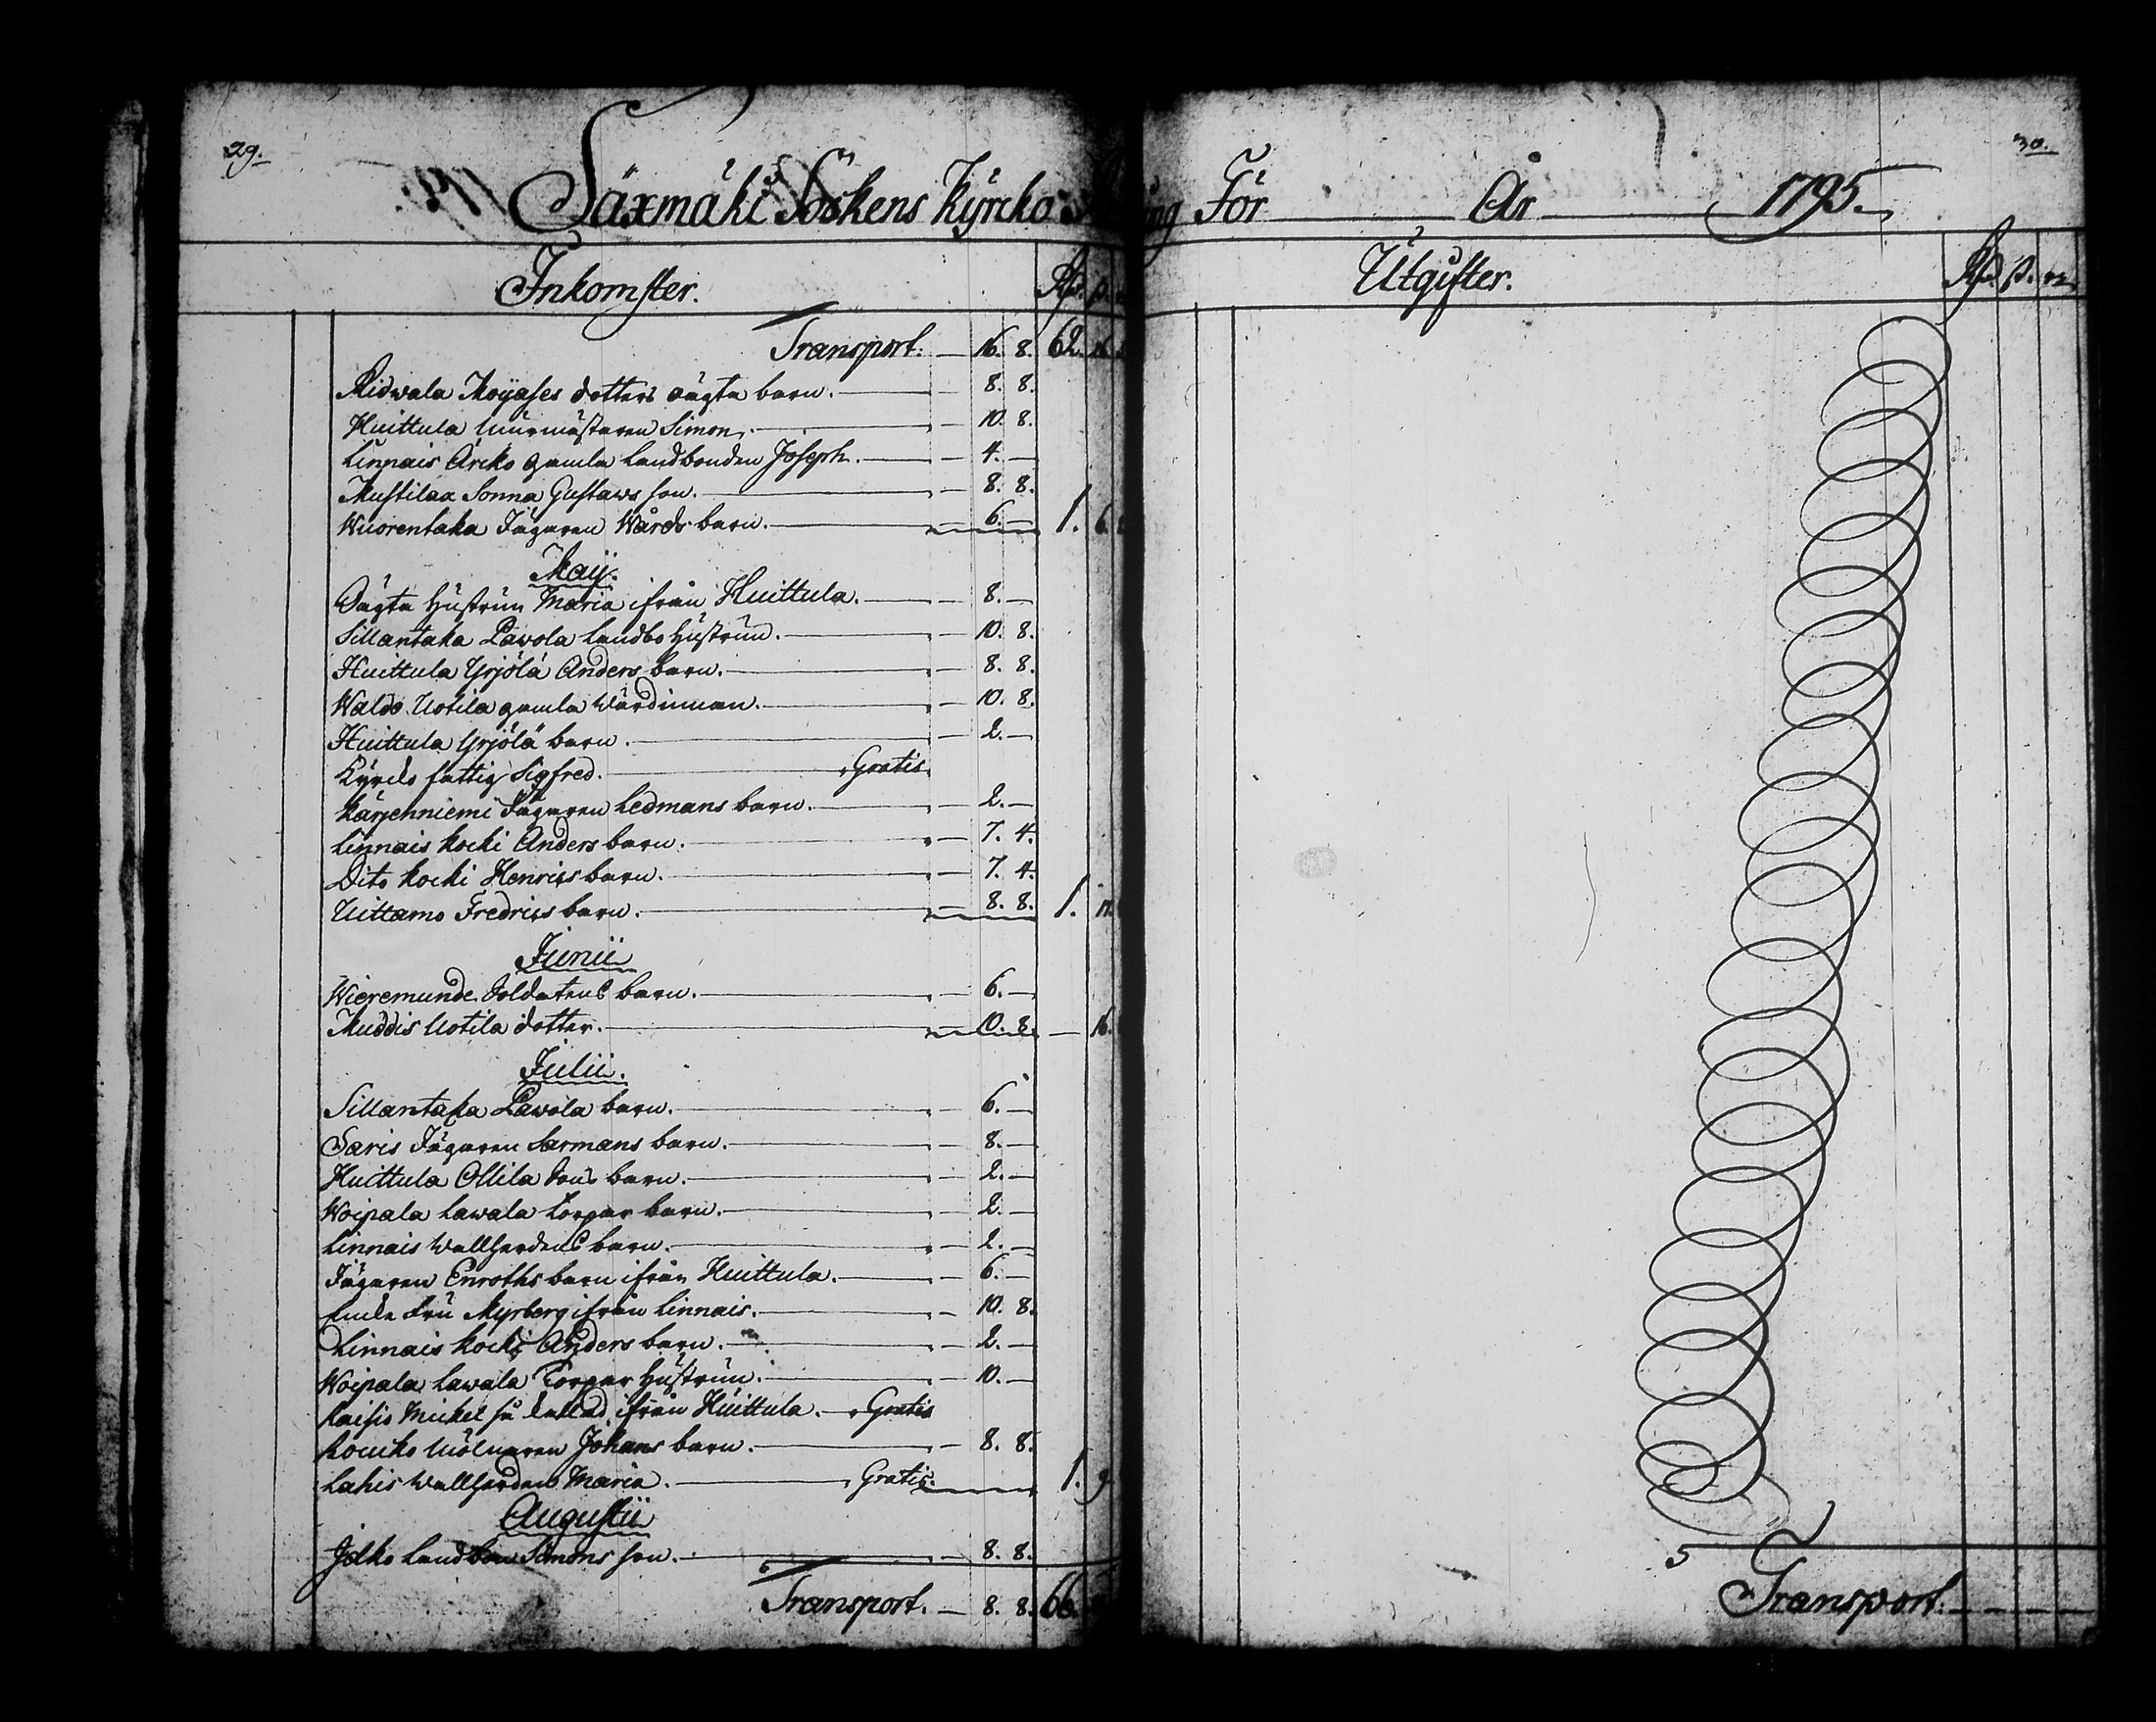 29.
Säxmäki Sockens Kyrcko
Inkomster. Rd. ß.
Transport. 16. 8. 62. 16.
Ridwala Moÿases dotters oägta barn. 8. 8.
Huittula Murmästaren Simon. 10. 8.
Linnais Arcko gamla Landbonden Joseph. 4.
Mustilax Sonna Gustaws son. 8. 8.
Wuorentaka Jägaren Wårds barn. 6. 1. 6.
Maÿ.
Oägta Hustrun Maria ifrån Huittula. 8.
Sillantaka Pawola Landbo Hustrun. 10. 8.
Huittula Yrjölä Anders barn. 8. 8.
Waldo Uotila gamla Wärdinnan. 10. 8.
Huittula Yrjölä barn. 2.
Kyrcko fattig Sigfred. Gratis.
Kärjenniemi Jägaren Ledmans barn. 2.
Linnais Kocki Anders barn. 7. 4.
Dito Kocki Henrics barn. 7. 4.
Uittamo Fredrics barn. 8. 8. 1.
Junii
Wieremunde Soldatens barn. 6.
Muddis Uotila dotter. 10. 8. 16.
Julii.
Sillantaka Pawola barn. 6.
Saris Jägaren Sarmans barn. 8.
Huittula Ollila Sons barn. 2.
Woipala Lawala Torpar barn. 2.
Linnais Wallherdens barn. 2.
Jägaren Enroths barn ifrån Huittula. 6.
Fru Myrberg ifrån Linnais. 10. 8.
Linnais Kocki Anders barn. 2.
Woipala Lawala Torpar Hustrun. 10.
Michel så kallad, ifrån Huittula. Gratis
Mölnaren Johans barn. 8. 8.
Lahis Wallherden Maria. Gratis. 1. 9
Augustii
Landbon Simons son. 8. 8.
Transport. 8. 8. 66.
30.
ing För År 1795.
Utgifter. Rd. ß. rr.
Transport.